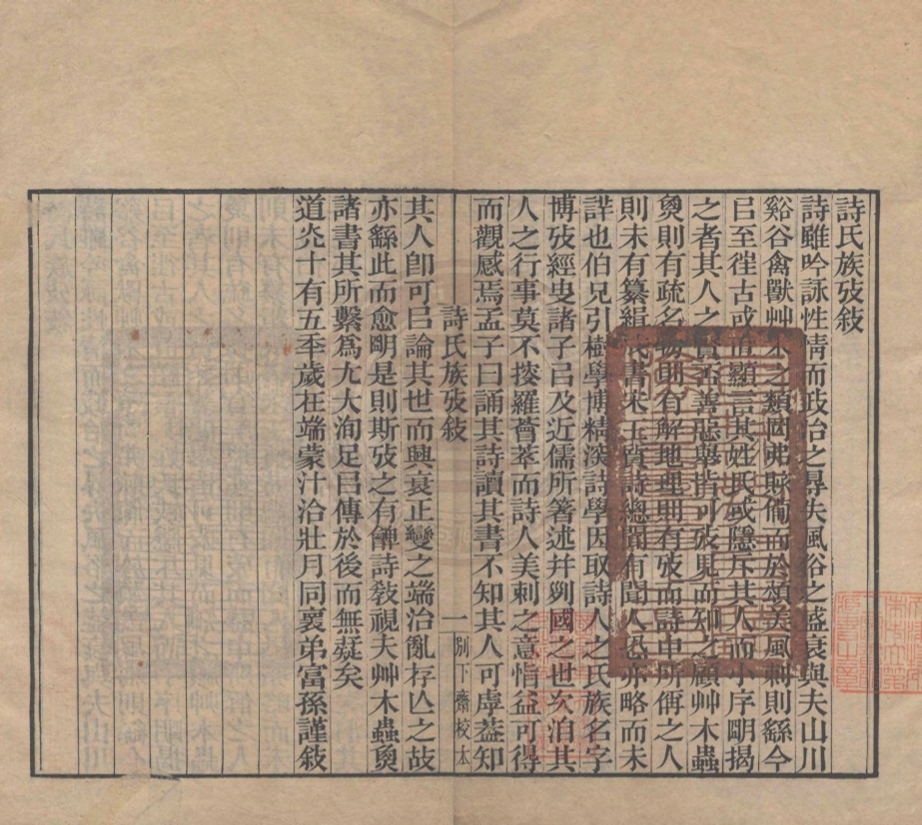 詩氏族攷敍
詩雖吟詠性情而政治之㝵失風俗之盛衰與夫山川
谿谷禽獸艸木之類罔弗賅僃而於頌美風刺則繇今
㠯至徃古或直顯言其姓氏或隱斥其人而小序朙揭
之者其人之賢否善惡舉皆可攷見而知之顧艸木蟲
𤋳則有疏名物則有解地理則有攷而詩中所偁之人
則未有纂緝成書宋王質詩總聞有聞人恐亦略而未
詳也伯兄引樹學博精湥詩學因取詩人之氏族名字
博攷經史諸子㠯及近儒所箸述幷列國之世次洎其
人之行事莫不搜羅薈萃而詩人美刺之意悄益可得
而觀感焉孟子曰誦其詩讀其書不知其人可虖葢知
詩氏族攷敍 一 別下齋校本
其人卽可㠯論其世而興衰正變之端治亂存亾之故
亦繇此而愈朙是則斯攷之有𨽻詩敎視夫艸木蟲𤋳
諸書其所繫爲尢大洵足㠯傳於後而無疑矣
道光十有五秊歲在端蒙汁洽壯月同裹弟富孫謹敍